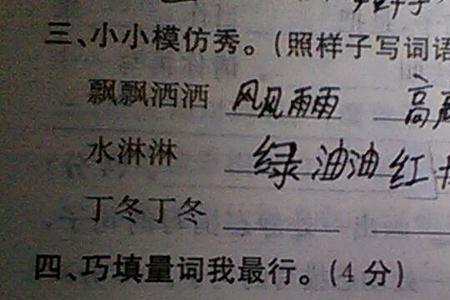 三、小小模仿秀。(照样子写词语
飘飘洒洒 风风雨雨 高
水淋淋 绿油油 红
丁冬丁冬
四、巧填量词我最行。(4分)